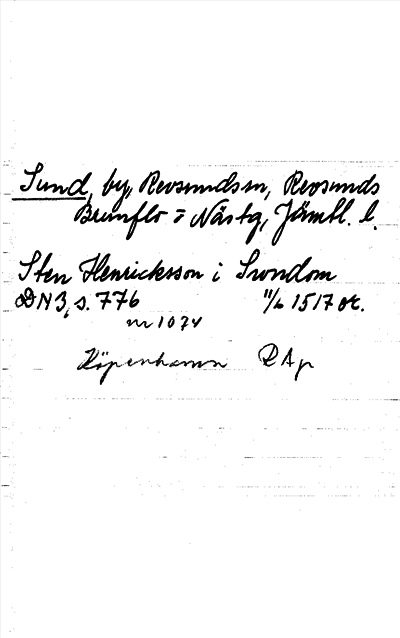 Sund, by, Revsunds sn, Revsunds
Brunflo o Näs tg, Jämtl. l.
Sten Henricksson i Swndom
DN 3, s. 776 11/6 1517 or.
nr 1074
Köpenhamn RA p